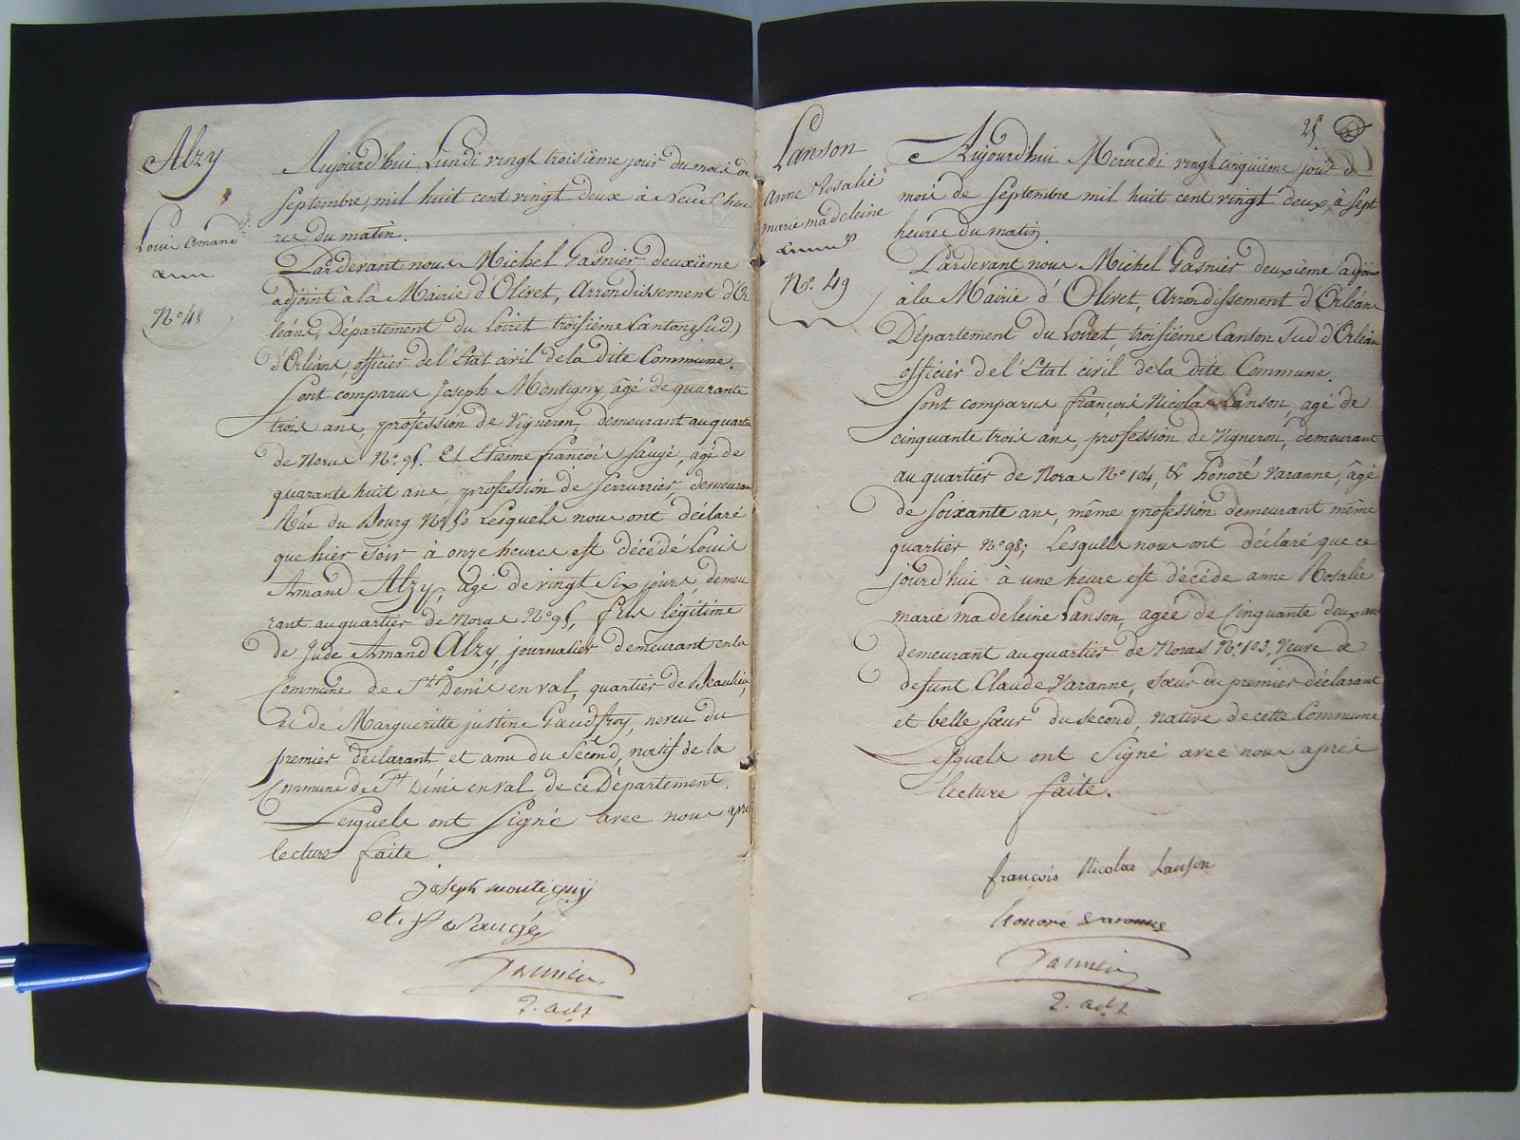 Alzy
Louis Amand
N.o 48
Aujourd'hui Lundi vingt troisième jour du mois de
Septembre, mil huit cent vingt deux à Neuf heu
res du matin.
Pardevant nous Michel Gasnier deuxième
adjoint à la Mairie d'Olivet, Arrondissement d'Or
léans, Département du Loiret troisième Canton (Sud)
d'Orléans, officier de l'État civil de la dite Commune.
Sont comparus Joseph Montigny, âgé de quarante
trois ans, profession de Vigneron, demeurant au quartier
de Noras N.o 95. Et Etienne françois Saugé, âgé de
quarante huit ans, profession de Serrurier, demeurant
Rüe du Bourg N.o 50 Lesquels nous ont déclaré
que hier soir à onze heures est décédé Louis
Amand Alzy, agé de vingt six jours, demeu
rant au quartier de Noras N.o 95, fils légitime
de Jude Amand Alzy, journalier demeurant en la
Commune de St. Denis en val, quartier de Beaulieu,
et de Margueritte justine Gaudfroy, neveu du
premier déclarant et ami du Second, natif de la
Commune de St. Dénis en val de ce Département.
Lesquels ont Signé avec nous après
lecture faite.
joseph montigny
et. f Saugé
Gasnier
2. adjt
25
Lanson
Anne Rosalie
marie madeleine
N.o 49
Aujourd'hui Mercredi vingt cinquième jour du
mois de Septembre mil huit cent vingt deux, à Sept
heures du matin.
Pardevant nous Michel Gasnier deuxième adjoint
à la Mairie d'Olivet, Arrondissement d'Orléans
Département du Loiret, troisième Canton Sud d'Orléans
officier de l'État civil de la dite Commune.
Sont comparus françois Nicolas Lanson, agé de
cinquante trois ans, profession de Vigneron, demeurant
au quartier de Noras N.o 104, & honoré Varanne, âgé
de soixante ans, même profession demeurant même
quartier N.o 98; Lesquels nous ont déclaré que ce
jourd'hui à une heure est décédé anne Rosalie
marie madeleine Lanson, agée de Cinquante deux ans
demeurant au quartier de Noras N.o 103, Veuve de
defunt Claude Varanne, Sœur du premier déclarant
et belle sœur du second, native de cette Commune
Lesquels ont Signé avec nous après
lecture faite.
françois Nicolas Lanson
honoré varanne
Gasnier
2. adjt